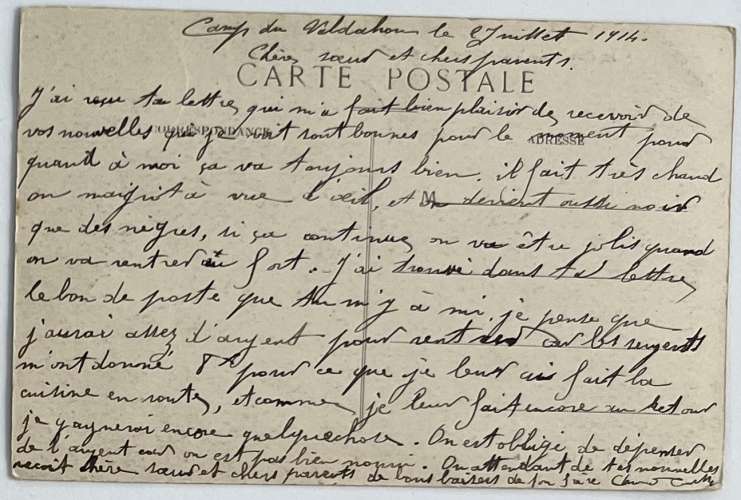 Camp du Valdahon le 2 Juillet 1914.
Chère sœur et chers parents.
CARTE POSTALE
J'ai reçu ta lettre, qui m'a fait bien plaisir de recevoir de
CORRESPONDANCE
ADRESSE
vos nouvelles que je voit sont bonnes pour le moment pour
quand à moi ça va toujours bien. il fait très chaud
on maigrit à vue d'œil, et on devient aussi noir
M
que des nègres, si ça continue, on va être jolis quand
on va rentrer au fort. J'ai trouvé dans ta lettre
le bon de poste que tu m'y à mi. je pense que
j'aurai assez d'argent pour rentrer car les sergents
m'ont donné pour ce que je leur ais fait la
cuisine en route, et comme je leur fait encore au retour
je gagnerai encore quelquechose. On est obligé de dépenser
de l'argent car on est pas bien nourri. En attendant de tes nouvelles
reçoit chère sœur et chers parents de bons baisers de ton frère